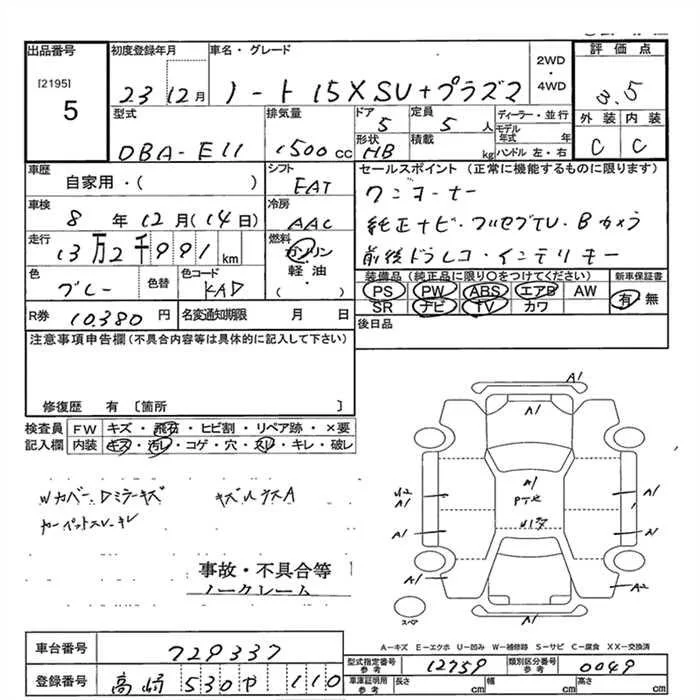 出品番号
[2195]
5
初度登録年月
23 12月
車名・グレード
ノート 15X SV+プラズマ
2WD
・
4WD
評価点
3.5
外装 内装
C C
型式
DBA-E11
排気量
1500 cc
ドア
5
定員
5 人
形状
HB
積載
kg
ディーラー・並行
モデル年式 年
ハンドル 左・右
車歴
自家用・( )
シフト
FAT
車検
8年12月(14日)
冷房
AAC
走行
13万2千991 km
燃料
ガソリン
軽・油
( )
色
グレー
色替
色コード
KAD
R券 10,380 円
名変通知期限 月 日
セールスポイント (正常に機能するものに限ります)
ワンオーナー
純正ナビ・フルセグTV・Bカメラ
前後ドラレコ・インテリキー
装備品 (純正品に限り○をつけてください)
PS PW ABS エアB AW
SR ナビ TV カワ
新車保証書
有・無
後日品
注意事項申告欄 (不具合内容等は具体的に記入して下さい)
修復歴 有 〔箇所 〕
検査員記入欄
FW キズ・飛石・ヒビ割・リペア跡・×要
内装 キズ・汚レ・コゲ・穴・スレ・キレ・破レ
Wカバー、Dミラーキズ
カーペットスレ・キレ
事故・不具合等
ノークレーム
A1
A1
A1
A1
A1
A1
A1
A2
スペア
A−キズ E−エクボ U−凹み W−補修跡 S−サビ C−腐食 XX−交換済
車台番号 729337
登録番号 高崎 530 ヤ 110
型式指定番号 参考 12759
類別区分番号 参考 0049
車庫証明用 参考 長さ cm 幅 cm 高さ cm